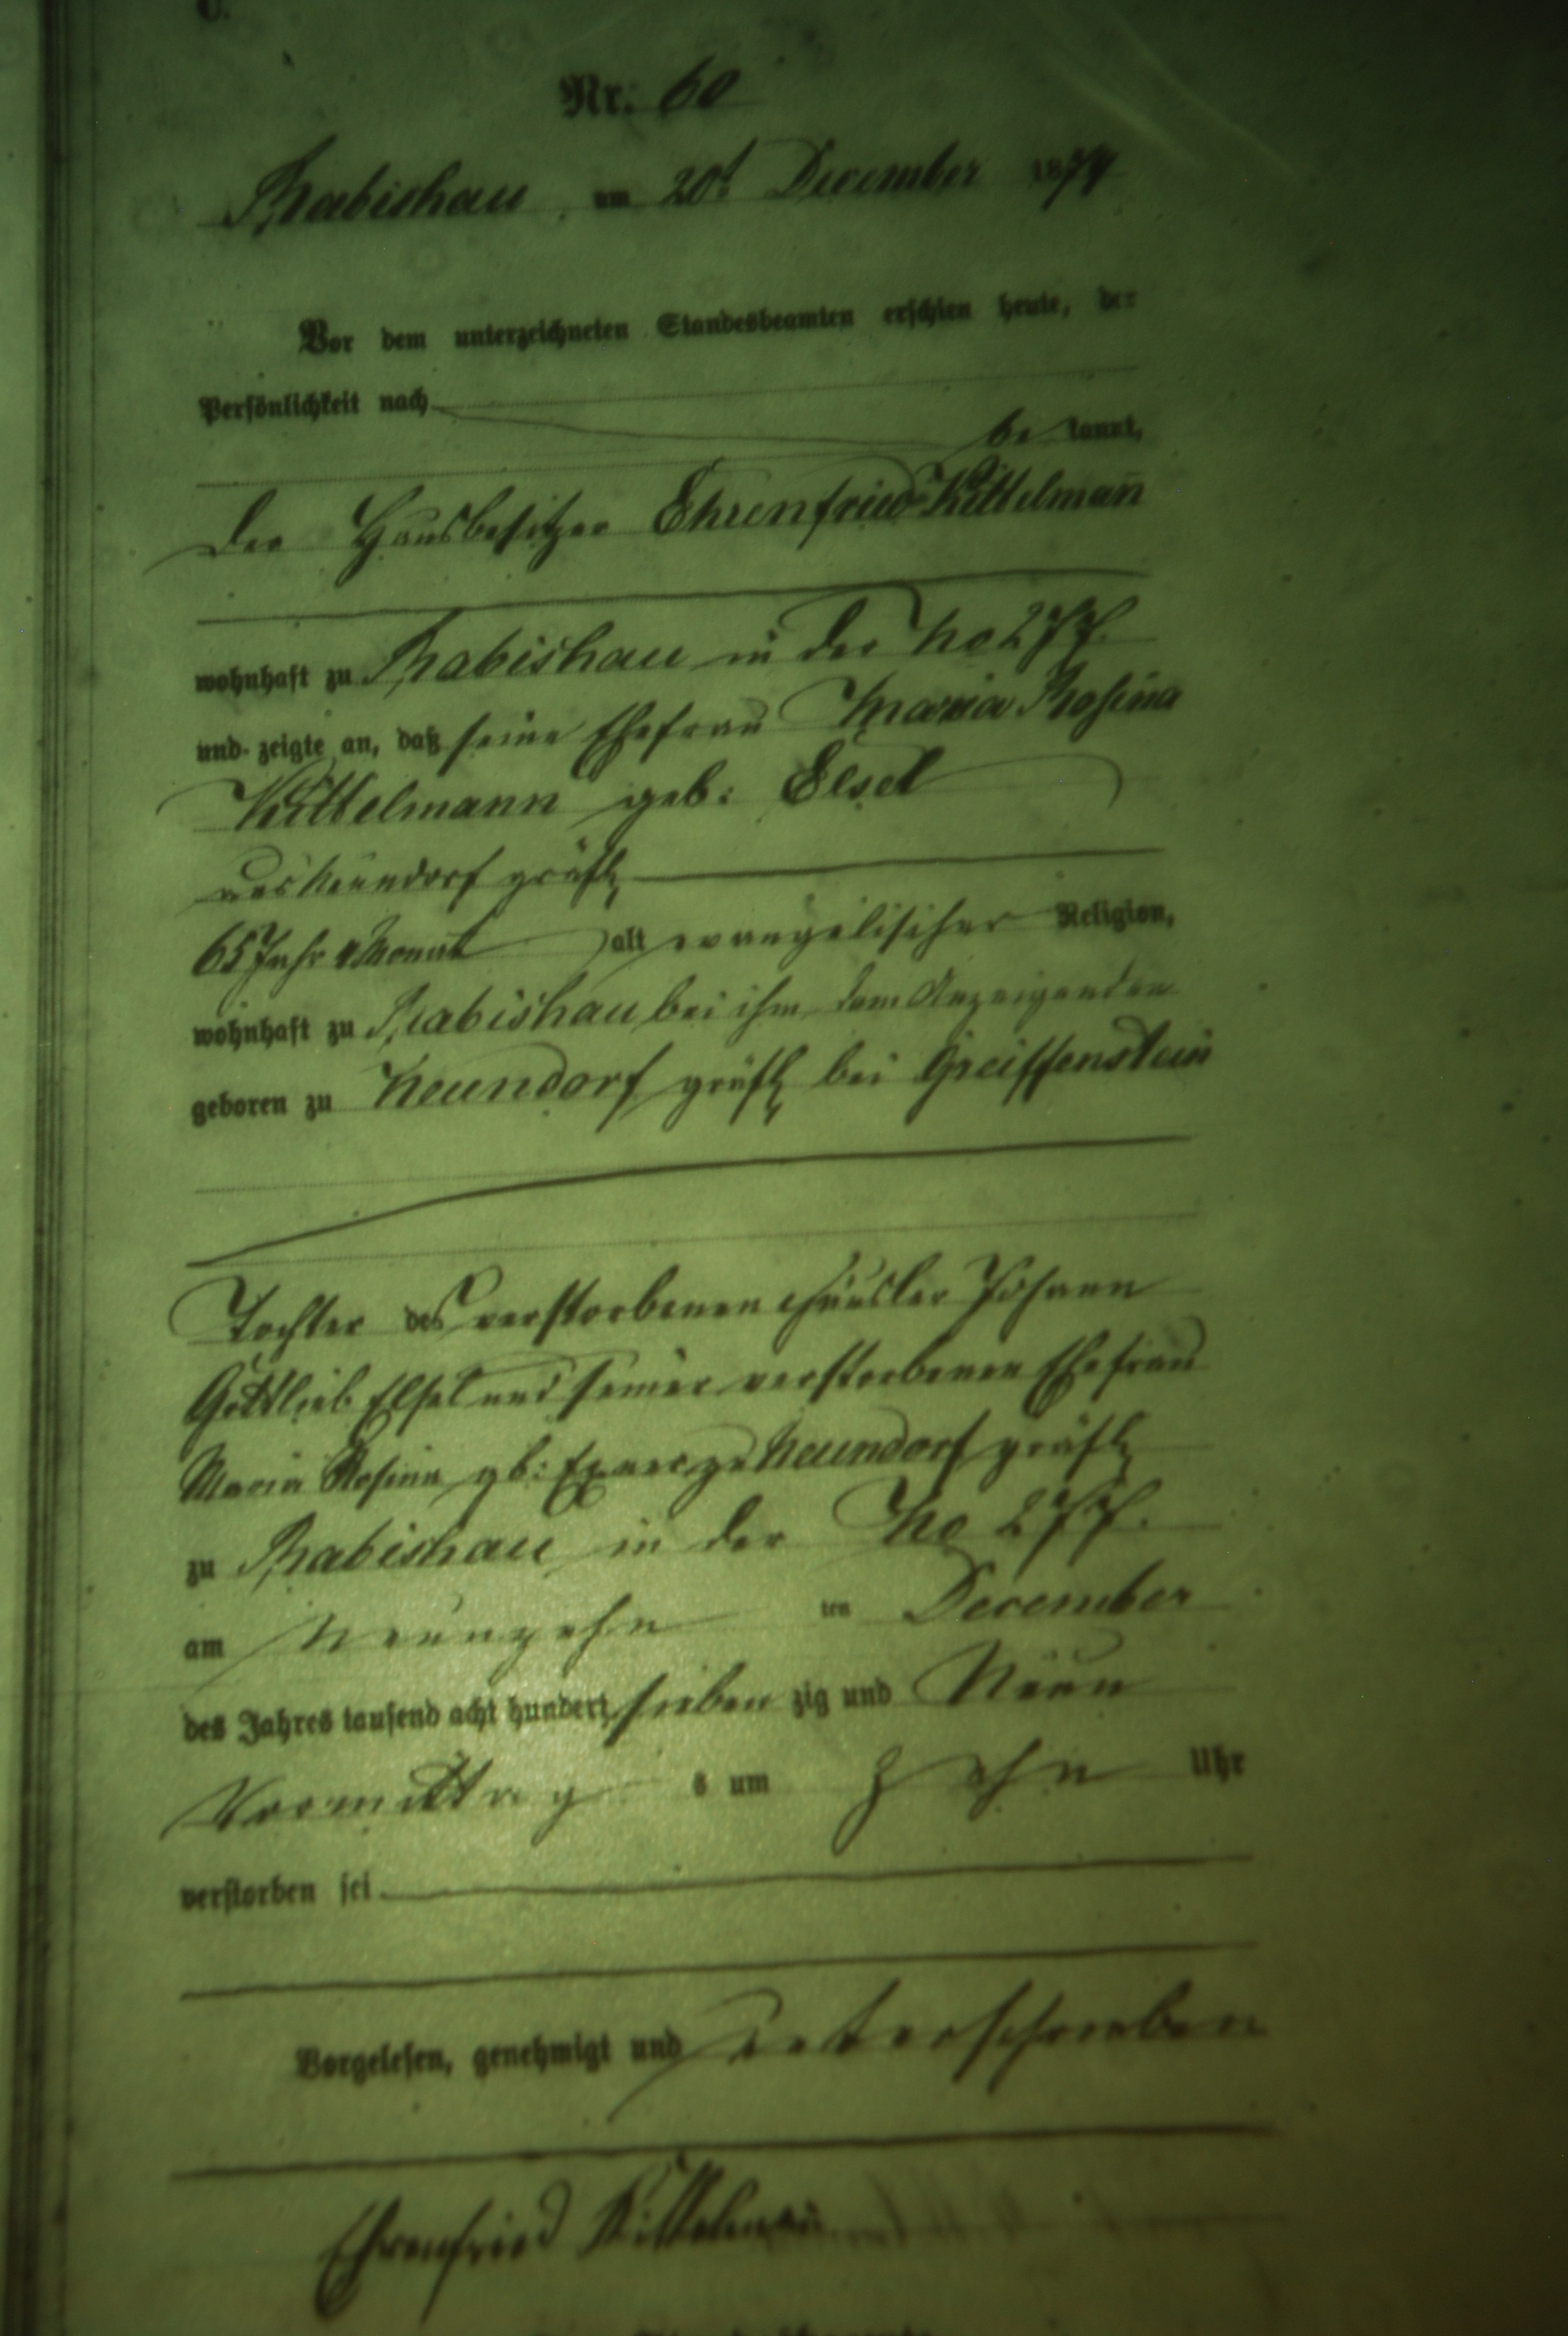 C.
Nr. 60
Rabishau, am 20t December 1879
Vor dem unterzeichneten Standesbeamten erschien heute, der
Persönlichkeit nach
be kannt,
der Hausbesitzer Ehrenfried Kittelmann
wohnhaft zu Rabishau in der No 277.
und zeigte an, daß seine Ehefrau Maria Rosina
Kittelmann geb: Elsel
aus Neundorf gräfl
65 Jahr Monat alt evangelischer Religion,
wohnhaft zu Rabishau bei ihm dem Anzeigenden
geboren zu Neundorf gräfl bei Greiffenstein
Tochter des verstorbenen Häusler Johann
Gottlieb Elsel und seiner verstorbenen Ehefrau
Maria Rosina gb: Exner zu Neundorf gräfl
zu Rabishau in der No 277.
am Neunzehn ten December
des Jahres tausend acht hundert sieben zig und Neun
Vormittag s um zehn Uhr
verstorben sei
Vorgelesen, genehmigt und unterschrieben
Ehrenfried Kittelmann